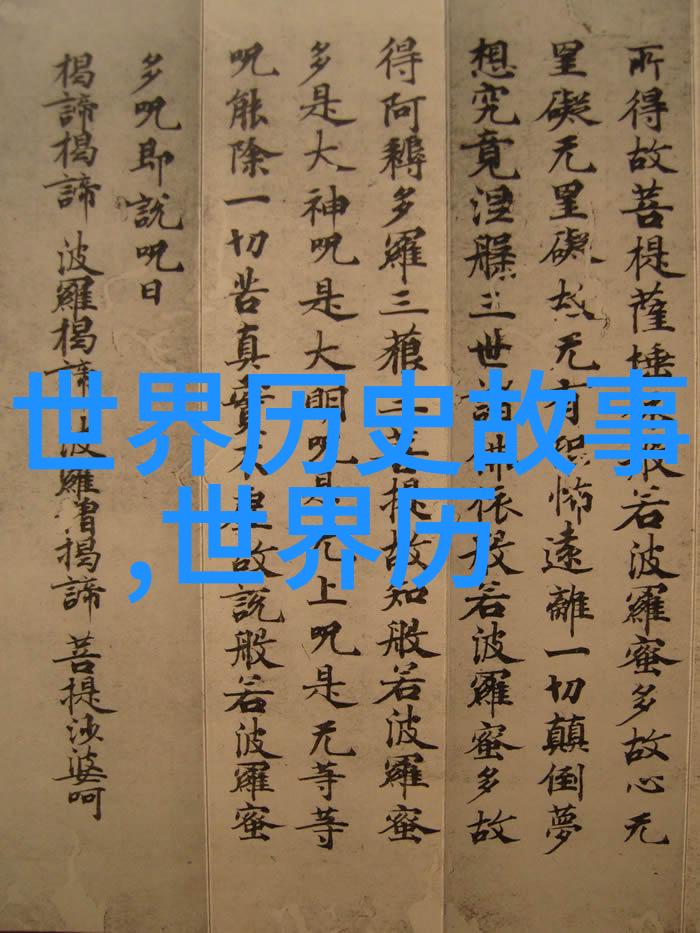 所得故菩提薩埵依般若波羅蜜多故心无
罣礙无罣礙故无有恐怖遠離一切顛倒夢
想究竟涅槃三世諸佛依般若波羅蜜多故
得阿耨多羅三藐三菩提故知般若波羅蜜
多是大神呪是大明呪是无上呪是无等等
呪能除一切苦真實不虛故說般若波羅蜜
多呪即說呪曰
揭諦揭諦 波羅揭諦 波羅僧揭諦 菩提沙婆呵
世界历史故事
,世界历